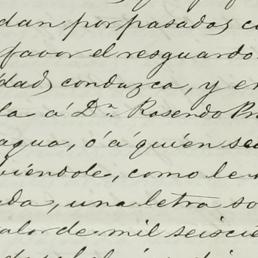 dan por pasados co
favor el resguardo
dad conduzca, y en
la á D.ª Rosendo Pr
agua, ó á quién sea
biéndole, como le
da, una letra so
valor de mil seiscie